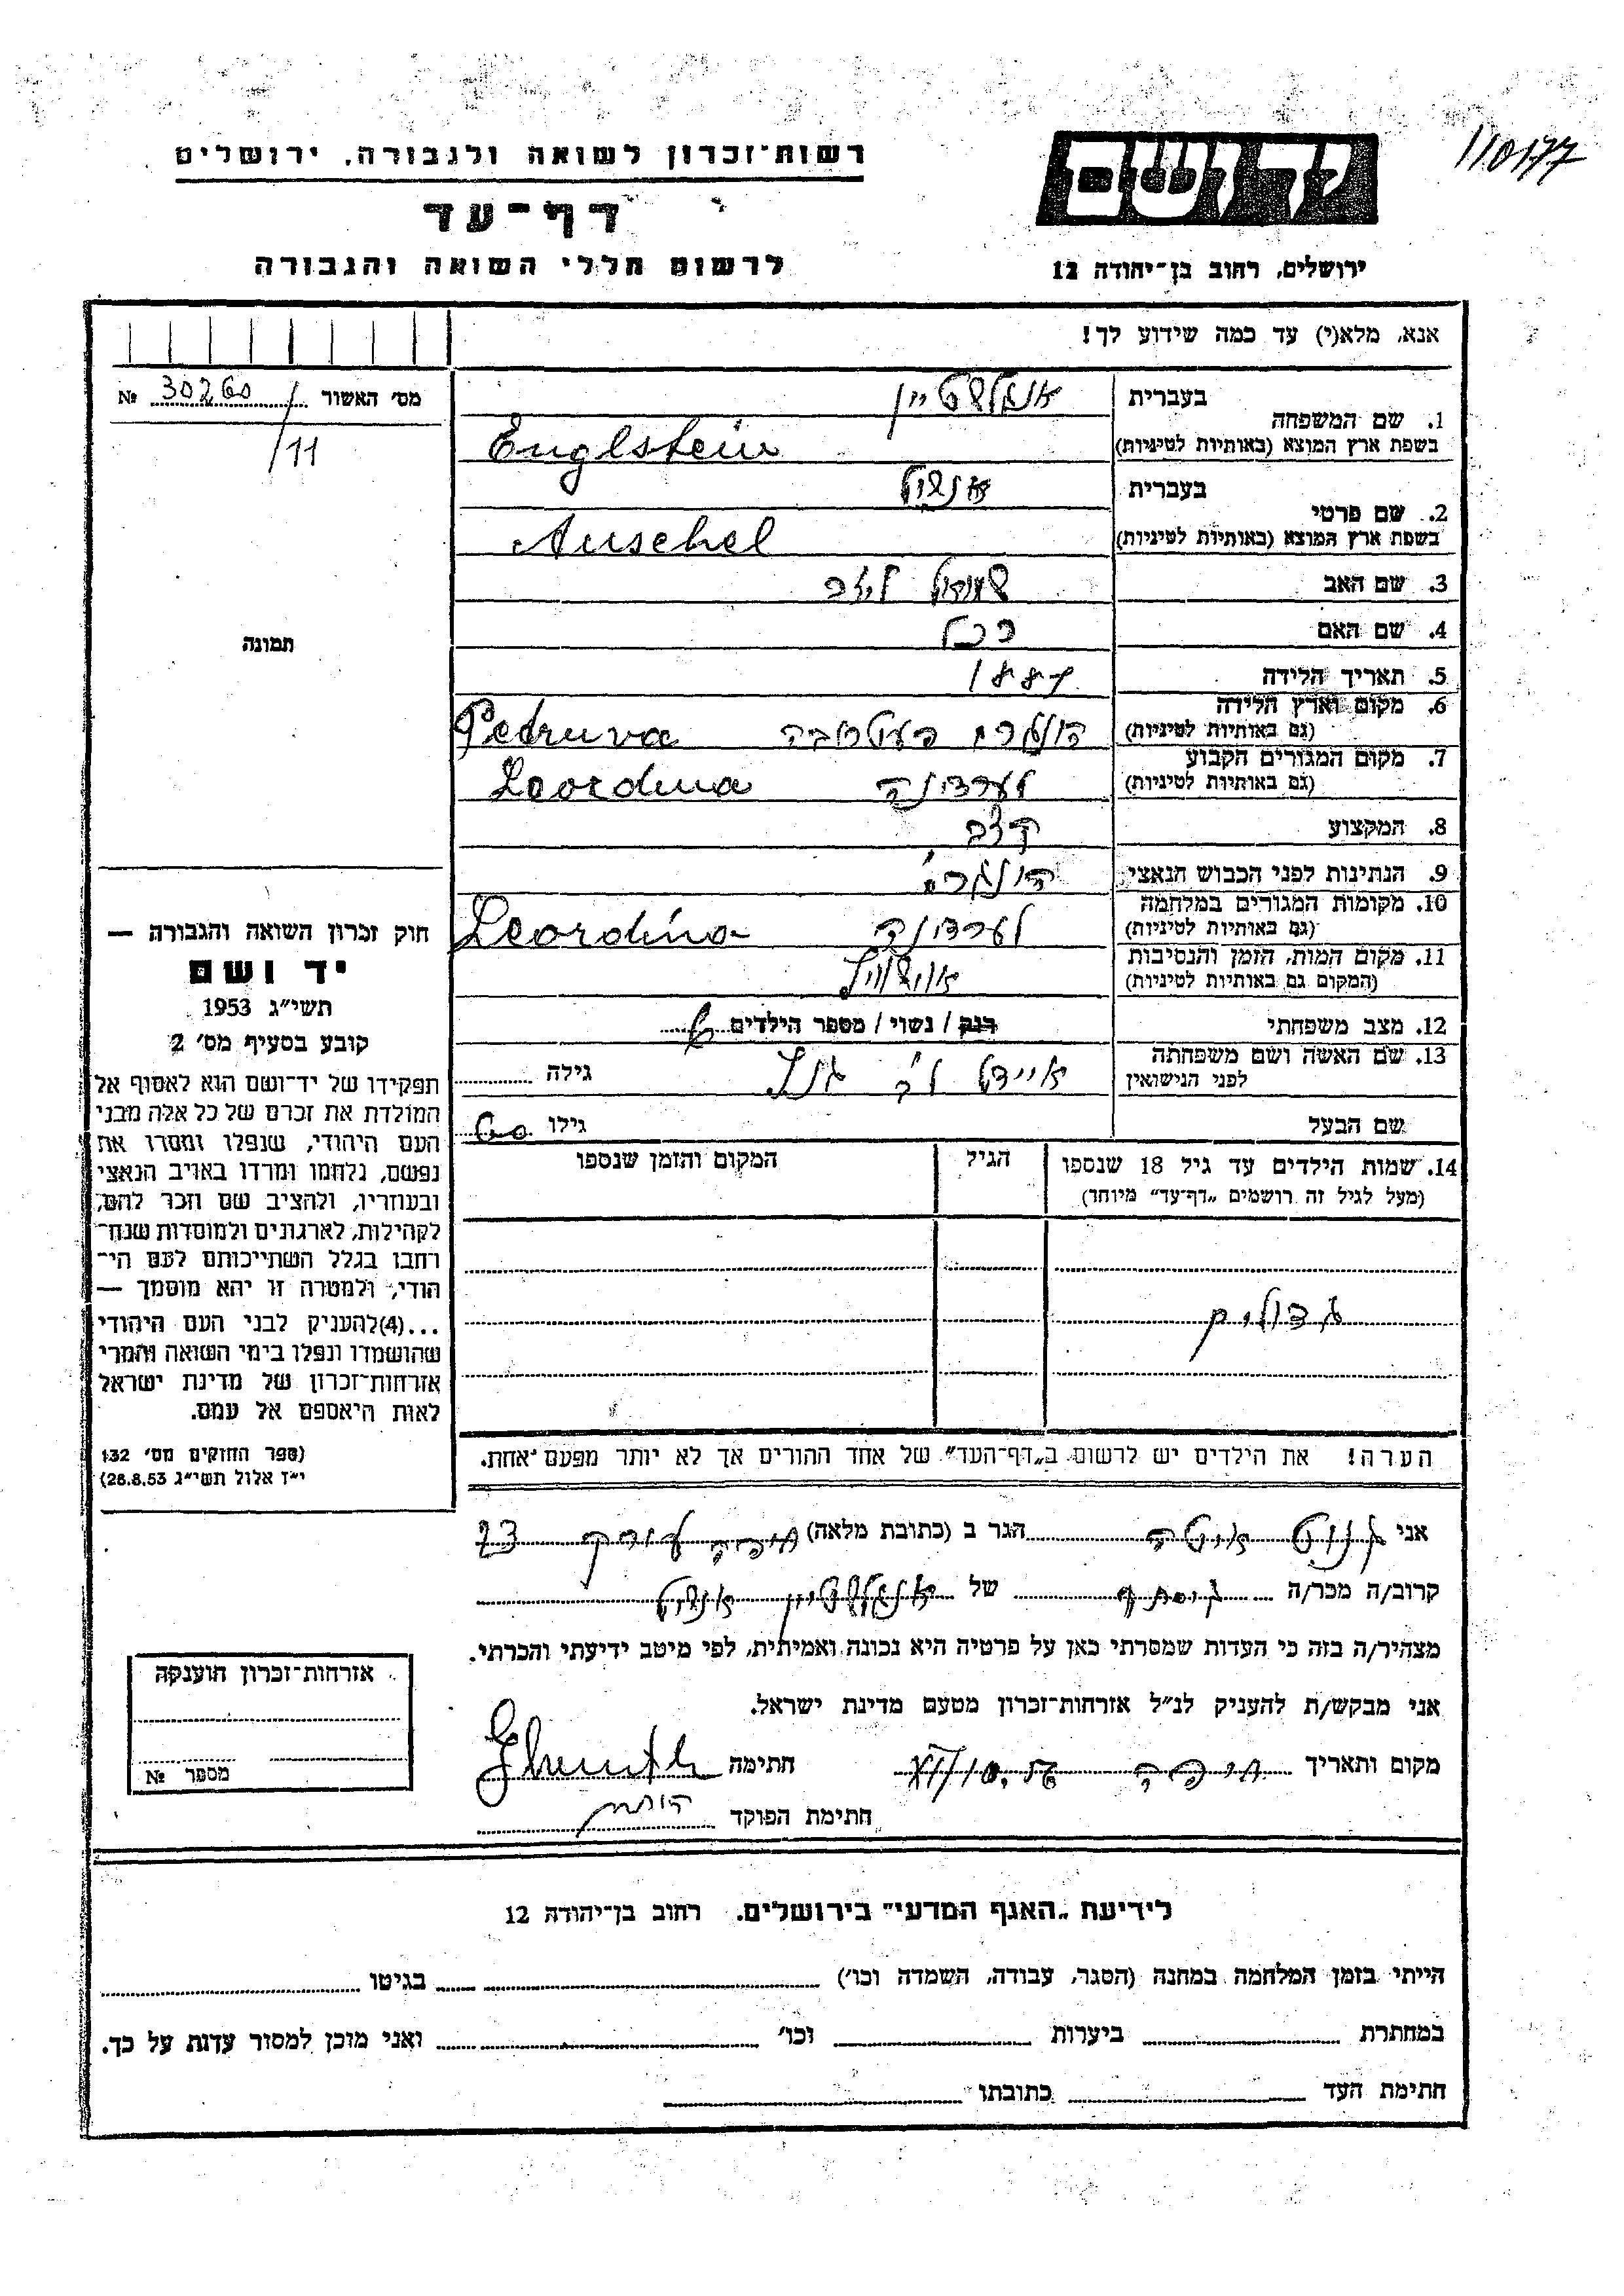 110177
רשות־זכרון לשואה ולגבורה, ירושלים
יד ושם
דף־עד
לרשום חללי השואה והגבורה
ירושלים, רחוב בן־יהודה 12
אנא, מלא(י) עד כמה שידוע לך!
מס' האשור 30260 №
/11
1. שם המשפחה בעברית אנגלשטיין
בשפת ארץ המוצא (באותיות לטיניות) Englstein
2. שם פרטי בעברית אנשל
בשפת ארץ המוצא (באותיות לטיניות) Anschel
3. שם האב שמואל לייב
4. שם האם רכל
5. תאריך הלידה 1887
6. מקום וארץ הלידה (גם באותיות לטיניות) הונגריה Petruva
7. מקום המגורים הקבוע (גם באותיות לטיניות) לערדינה Leordina
8. המקצוע קצב
9. הנתינות לפני הכבוש הנאצי הונגרי
10. מקומות המגורים במלחמה (גם באותיות לטיניות) לערדינה Leordina
11. מקום המות, הזמן והנסיבות (המקום גם באותיות לטיניות) אושוויץ
12. מצב משפחתי רוק / נשוי / מספר הילדים 6
13. שם האשה ושם משפחתה לפני הנישואין גילה
שם הבעל גילו 60
14. שמות הילדים עד גיל 18 שנספו
(מעל לגיל זה רושמים „דף־עד" מיוחד)
הגיל
המקום והזמן שנספו
גדולים
תמונה
חוק זכרון השואה והגבורה —
יד ושם
תשי"ג 1953
קובע בסעיף מס' 2
תפקידו של יד־ושם הוא לאסוף אל
המולדת את זכרם של כל אלה מבני
העם היהודי, שנפלו ומסרו את
נפשם, נלחמו ומרדו באויב הנאצי
ובעוזריו, ולהציב שם וזכר להם,
לקהילות, לארגונים ולמוסדות שנח־
רבו בגלל השתייכותם לעם הי־
הודי, ולמטרה זו יהא מוסמך —
...(4)להעניק לבני העם היהודי
שהושמדו ונפלו בימי השואה והמרי
אזרחות־זכרון של מדינת ישראל
לאות היאספם אל עמם.
(ספר החוקים מס' 132
י"ז אלול תשי"ג 28.8.53)
הערה! את הילדים יש לרשום ב„דף־העד" של אחד ההורים אך לא יותר מפעם אחת.
אני הגר ב (כתובת מלאה) חיפה 23
קרוב/ה מכר/ה של אנגלשטיין אנשל
מצהיר/ה בזה כי העדות שמסרתי כאן על פרטיה היא נכונה ואמיתית, לפי מיטב ידיעתי והכרתי.
אני מבקש/ת להעניק לנ"ל אזרחות־זכרון מטעם מדינת ישראל.
מקום ותאריך חיפה חתימה
חתימת הפוקד
אזרחות־זכרון הוענקה
מספר №
לידיעת „האגף המדעי" בירושלים. רחוב בן־יהודה 12
הייתי בזמן המלחמה במחנה (הסגר, עבודה, השמדה וכו') בגיטו
במחתרת ביערות וכו' ואני מוכן למסור עדות על כך.
חתימת העד כתובתו